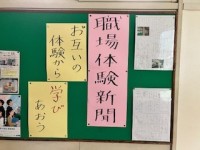 職場体験新聞
お互いの
体験から
学び
あおう